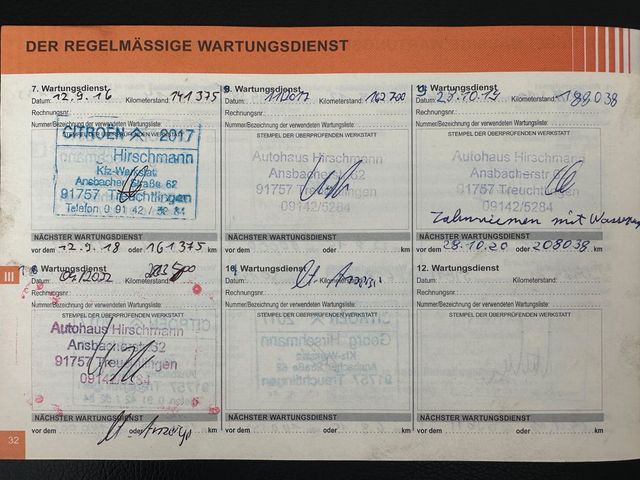 DER REGELMÄSSIGE WARTUNGSDIENST
7. Wartungsdienst
Datum: 12.9.16 Kilometerstand: 141 375
Rechnungsnr.
Nummer/Bezeichnung der verwendeten Wartungsliste:
STEMPEL DER ÜBERPRÜFENDEN WERKSTATT
CITROËN 2017
Hirschmann
Kfz-Werkstatt
Ansbacher Straße 62
91757 Treuchtlingen
Telefon 0 91 42 / 52 84
NÄCHSTER WARTUNGSDIENST
vor dem 12.9.18 oder 161 375 km
Wartungsdienst
Datum: Kilometerstand: 162 700
Rechnungsnr.
Nummer/Bezeichnung der verwendeten Wartungsliste:
STEMPEL DER ÜBERPRÜFENDEN WERKSTATT
Autohaus Hirschmann
Ansbacherstr 62
91757 Treuchtlingen
09142/5284
NÄCHSTER WARTUNGSDIENST
vor dem oder km
Wartungsdienst
Datum: 29.10.19 188 038
Rechnungsnr.:
Nummer/Bezeichnung der verwendeten Wartungsliste:
STEMPEL DER ÜBERPRÜFENDEN WERKSTATT
Autohaus Hirschmann
Ansbacherstr 62
91757 Treuchtlingen
09142/5284
Zahnriemen mit
NÄCHSTER WARTUNGSDIENST
vor dem 28.10.20 oder 208038 km
III
Wartungsdienst
Datum: 04/2022 Kilometerstand:
Rechnungsnr.
Nummer/Bezeichnung der verwendeten Wartungsliste:
STEMPEL DER ÜBERPRÜFENDEN WERKSTATT
Autohaus Hirschmann
Ansbacherstr 62
91757 Treuchtlingen
09142/5284
NÄCHSTER WARTUNGSDIENST
vor dem oder km
10. Wartungsdienst
Datum:
Rechnungsnr.:
Nummer/Bezeichnung der verwendeten Wartungsliste:
STEMPEL DER ÜBERPRÜFENDEN WERKSTATT
NÄCHSTER WARTUNGSDIENST
vor dem oder km
12. Wartungsdienst
Datum: Kilometerstand:
Rechnungsnr.:
Nummer/Bezeichnung der verwendeten Wartungsliste:
STEMPEL DER ÜBERPRÜFENDEN WERKSTATT
NÄCHSTER WARTUNGSDIENST
vor dem oder km
32